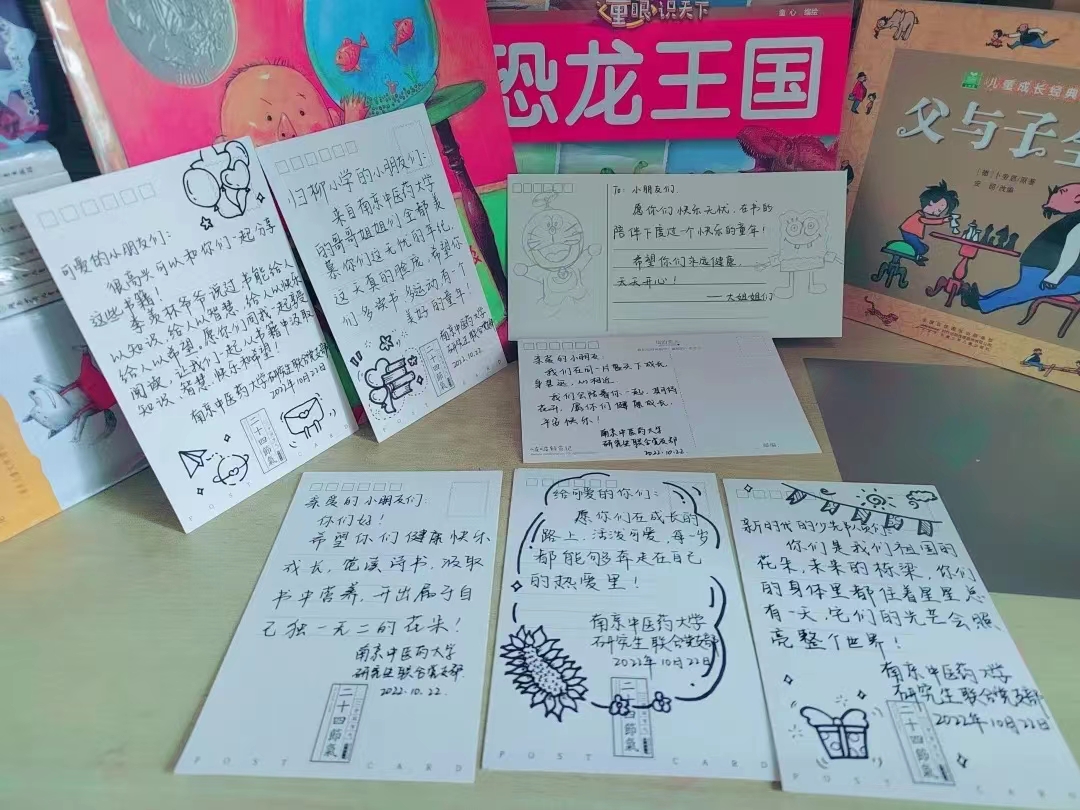 童眼识天下
童心 编绘
恐龙王国
儿童成长经典
父与子全
[德]卜劳恩 原著
可爱的小朋友们:
很高兴可以和你们一起分享
这些书籍!
李羡林爷爷说过书能给人
以知识,给人以智慧,给人以快乐
给人以希望,愿你们用我一起爱
阅读,让我们一起从书籍中汲取
知识、智慧、快乐和希望!
南京中医药大学研究生联合党支部
2022年10月22日
二十四節氣
POST
归柳小学的小朋友们:
来自南京中医药大学
的哥哥姐姐们全都羡
慕你们这无忧的年纪
这天真的脸庞,希望你
们多读书,多运动,有个
美好的童年!
南京中医药大学
研究生联合党支部
2022.10.22
To: 小朋友们
愿你们快乐无忧,在书的
陪伴下度过一个快乐的童年!
希望你们永远健康,
天天开心!
——大姐姐们
亲爱的小朋友:
我们在同一片蓝天下成长,
虽甚远,心相近.
我们会陪着你一起,静待
花开,愿你们健康成长,
平安快乐!
南京中医药大学
研究生联合党支部
2022.10.22
亲爱的小朋友们:
你们好!
希望你们健康快乐
成长,饱读诗书,汲取
书中营养,开出属于自
己独一无二的花朵!
南京中医药大学
研究生联合党支部
2022.10.22
二十四節氣
POST CARD
给可爱的你们:
愿你们在成长的
路上,活泼可爱,每一步
都能够奔走在自己
的热爱里!
南京中医药大学
研究生联合党支部
2022年10月22日
二十四節氣
POST CARD
新时代的少先队员们:
你们是我们祖国的
花朵,未来的栋梁,你们
的身体里都住着星星,总
有一天,它们的光芒会照
亮整个世界!
南京中医药大学
研究生联合党支部
2022年10月22日
二十四節氣
POST CARD